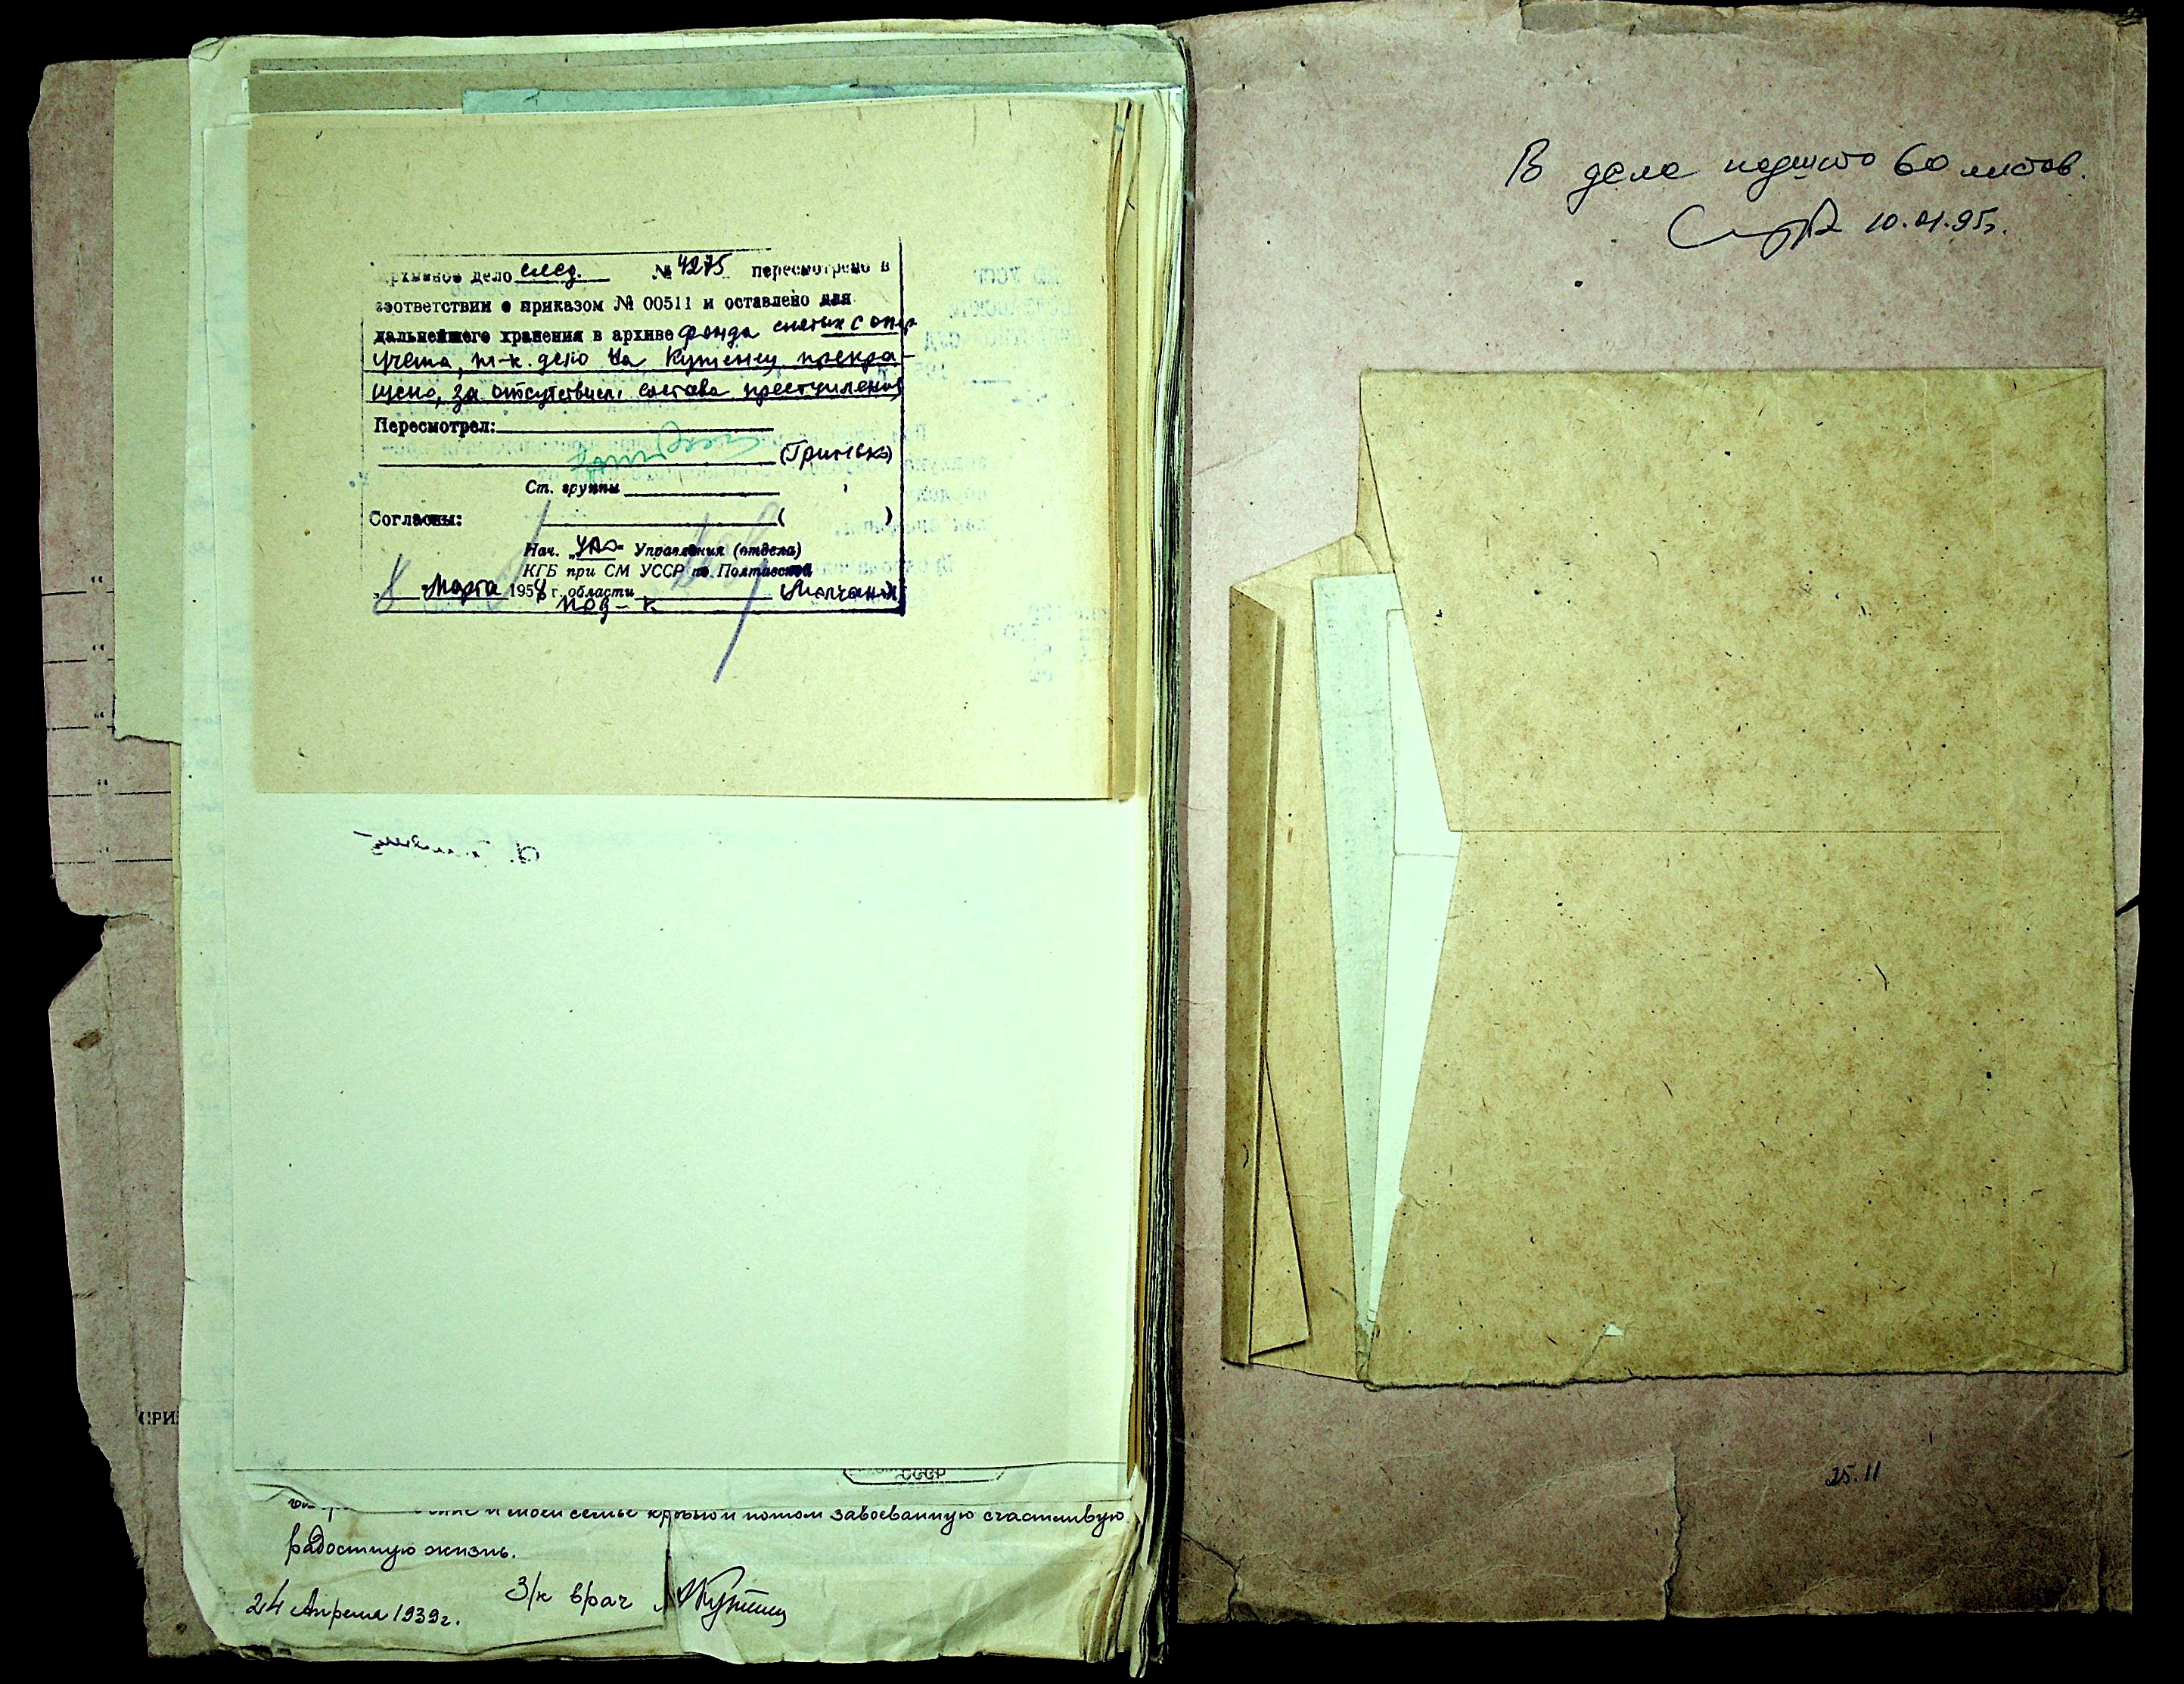 Архивное дело след. № 4275 пересмотрено в
соответствии с приказом № 00511 и оставлено для
дальнейшего хранения в архиве фонда снятых с опер
учета, т-к. дело на Кутенец прекра-
щено, за отсутствием состава преступления
Пересмотрел:
(Гринько)
Ст. группы
Согласны: ( )
Нач. "УАО" Управления (отдела)
КГБ при СМ УССР по Полтавской
8 Марта 195 г. области (Молчанов)
под-к
СССР
и моей семье кровью и потом завоеванную счастливую
радостную жизнь.
24 Апреля 1939 г. З/к врач
В деле подшито 60 листов.
10.01.95г.
25.11
СРИ